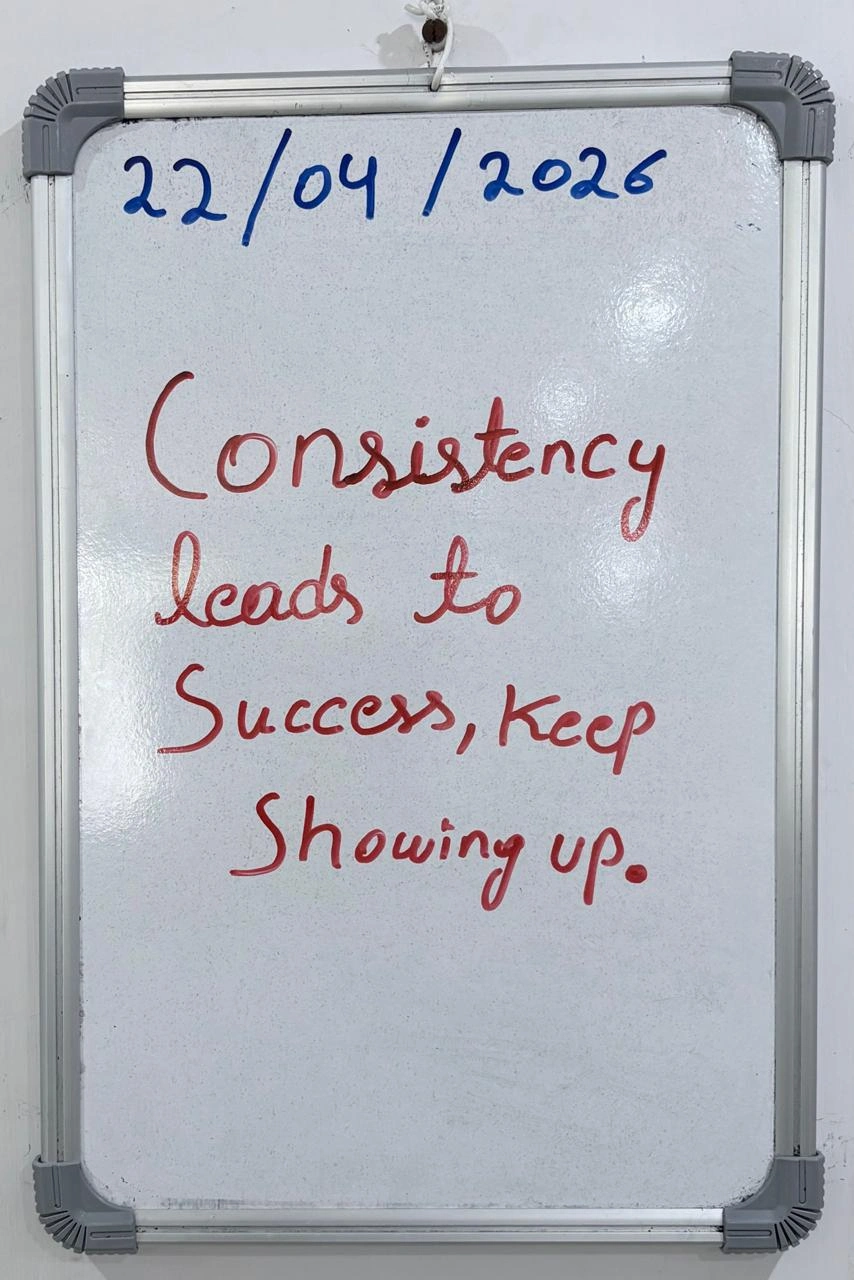 22/04/2026
Consistency
leads to
Success, Keep
Showing up.